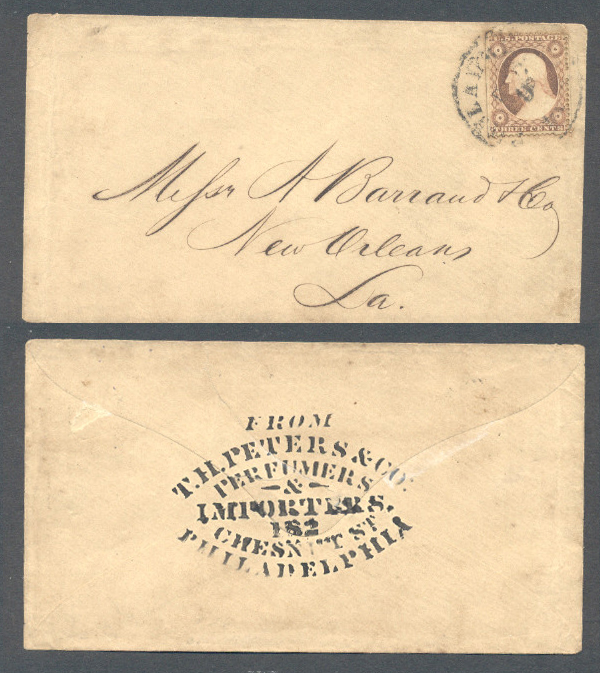 U.S. POSTAGE
THREE CENTS
Messr A Barraud & Co
New Orleans
La.
FROM
T.H. PETERS & CO.
PERFUMERS
&
IMPORTERS.
162
CHESNUT ST
PHILADELPHIA